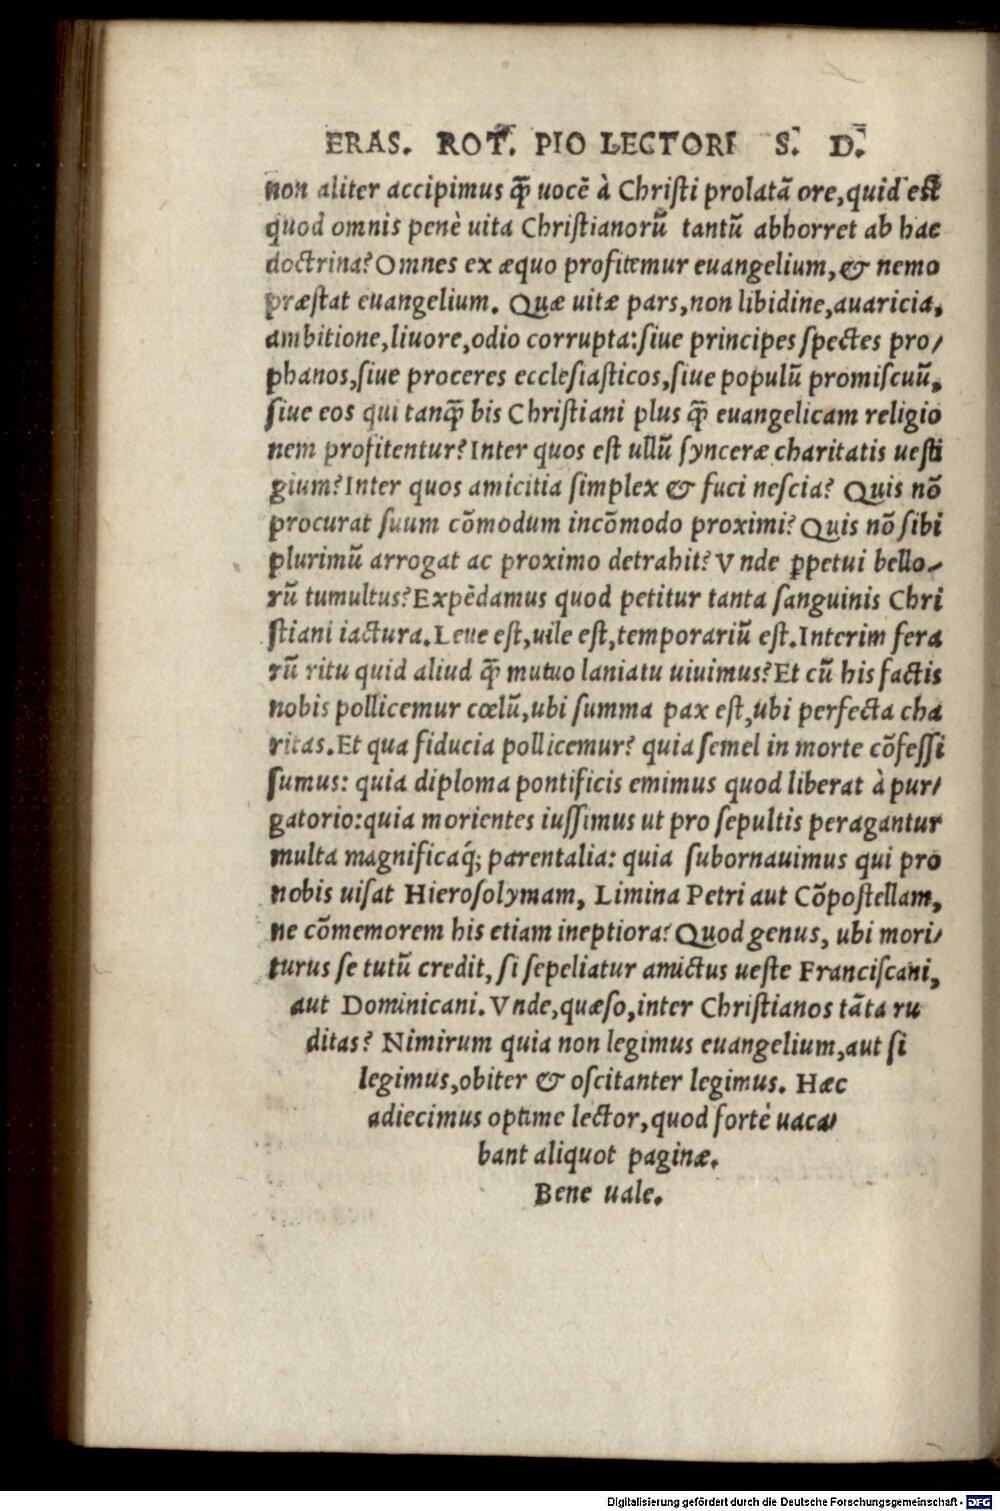 ERAS. ROT. PIO LECTORI S. D.
non aliter accipimus q̃ uocẽ à Christi prolatã ore, quid est
quod omnis penè uita Christianorũ tantũ abhorret ab hac
doctrina? Omnes ex æquo profitemur euangelium, & nemo
præstat euangelium. Quæ uitæ pars, non libidine, auaricia,
ambitione, liuore, odio corrupta: siue principes spectes pro/
phanos, siue proceres ecclesiasticos, siue populũ promiscuũ,
siue eos qui tanq̃ bis Christiani plus q̃ euangelicam religio
nem profitentur? Inter quos est ullũ synceræ charitatis uesti
gium? Inter quos amicitia simplex & fuci nescia? Quis nõ
procurat suum cõmodum incõmodo proximi? Quis nõ sibi
plurimũ arrogat ac proximo detrahit? Vnde ꝑpetui bello/
rũ tumultus? Expẽdamus quod petitur tanta sanguinis Chri
stiani iactura. Leue est, uile est, temporariũ est. Interim fera
rũ ritu quid aliud q̃ mutuo laniatu uiuimus? Et cũ his factis
nobis pollicemur cœlũ, ubi summa pax est, ubi perfecta cha
ritas. Et qua fiducia pollicemur? quia semel in morte cõfessi
sumus: quia diploma pontificis emimus quod liberat à pur/
gatorio: quia morientes iussimus ut pro sepultis peragantur
multa magnificaq́; parentalia: quia subornauimus qui pro
nobis uisat Hierosolymam, Limina Petri aut Cõpostellam,
ne cõmemorem his etiam ineptiora? Quod genus, ubi mori/
turus se tutũ credit, si sepeliatur amictus ueste Franciscani,
aut Dominicani. Vnde, quæso, inter Christianos tãta ru
ditas? Nimirum quia non legimus euangelium, aut si
legimus, obiter & oscitanter legimus. Hæc
adiecimus optime lector, quod fortè uaca/
bant aliquot paginæ.
Bene uale.
Digitalisierung gefördert durch die Deutsche Forschungsgemeinschaft - DFG